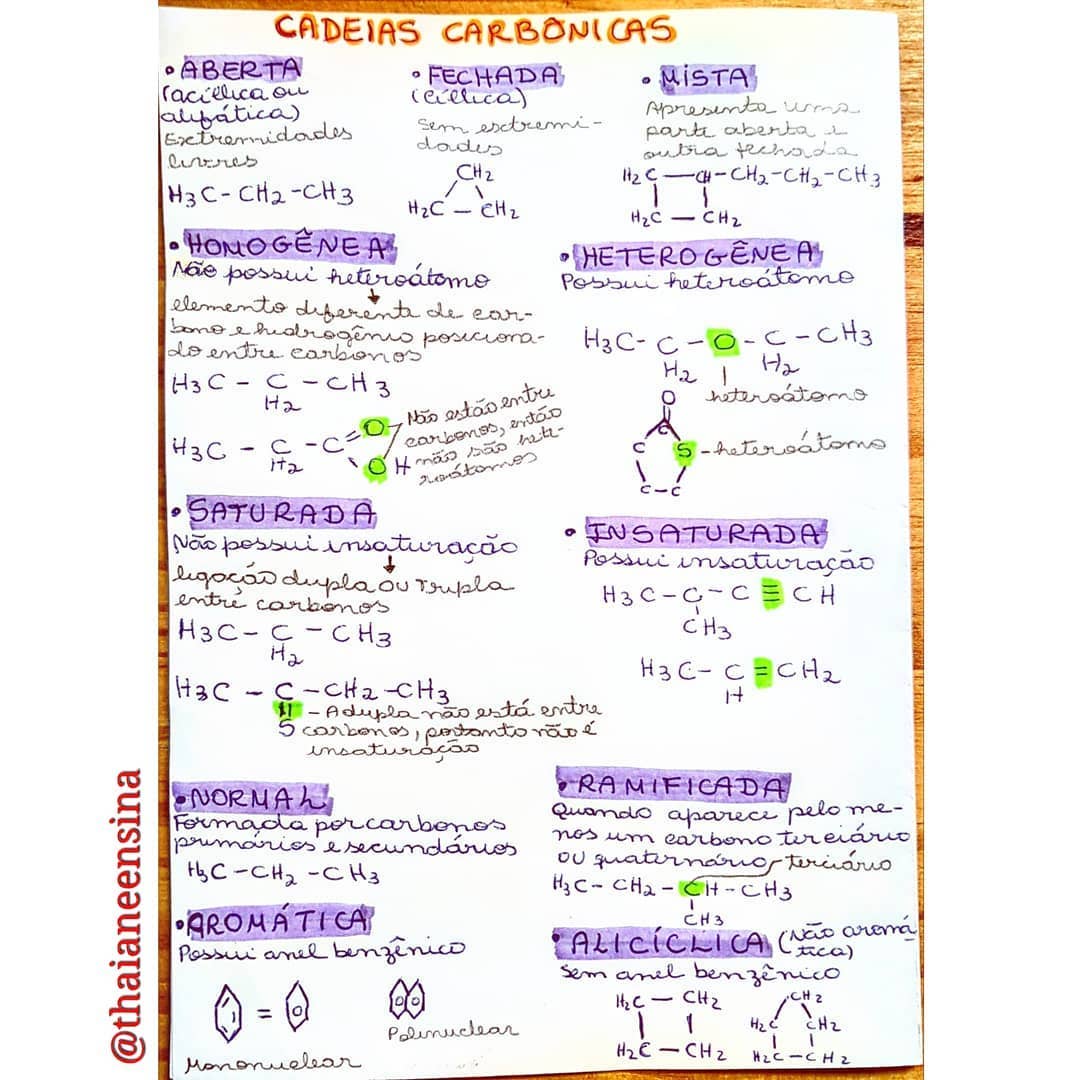 CADEIAS CARBÔNICAS
• ABERTA
(acíclica ou
alifática)
Extremidades
livres
H3C - CH2 - CH3
• FECHADA
(cíclica)
Sem extremi-
dades
CH2
H2C — CH2
• MISTA
Apresenta uma
parte aberta e
outra fechada
H2C — CH - CH2 - CH2 - CH3
H2C — CH2
• HOMOGÊNEA
Não possui heteroátomo
elemento diferente de car-
bono e hidrogênio posiciona-
do entre carbonos
H3C - C - CH3
H2
H3C - C - C = O
H2
OH
Não estão entre
carbonos, então
não são hete-
roátomos
• HETEROGÊNEA
Possui heteroátomo
H3C - C - O - C - CH3
H2 H2
heteroátomo
O
C
C S - heteroátomo
C - C
• SATURADA
Não possui insaturação
ligação dupla ou Tripla
entre carbonos
H3C - C - CH3
H2
H3C - C - CH2 - CH3
- A dupla não está entre
S carbonos, portanto não é
insaturação
• INSATURADA
Possui insaturação
H3C - C - C ≡ CH
CH3
H3C - C = CH2
H
• NORMAL
Formada por carbonos
primários e secundários
H3C - CH2 - CH3
• RAMIFICADA
Quando aparece pelo me-
nos um carbono terciário
ou quaternário terciário
H3C - CH2 - CH - CH3
CH3
• AROMÁTICA
Possui anel benzênico
=
Mononuclear
Polinuclear
• ALICÍCLICA (Não aromá-
tica)
Sem anel benzênico
H2C — CH2
H2C — CH2
CH2
H2C CH2
H2C - CH2
@thaianeensina